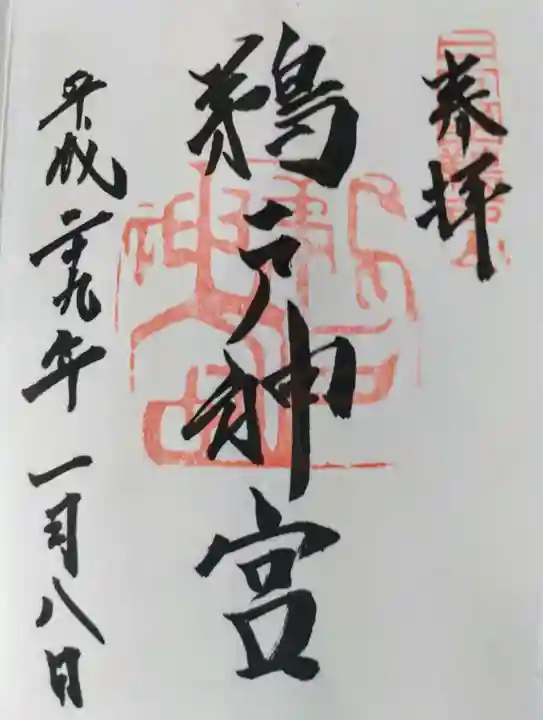 奉拝
鵜戸神宮
平成二十九年一月八日